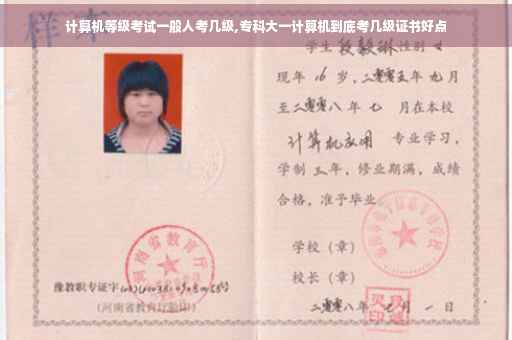 计算机等级考试一般人考几级,专科大一计算机到底考几级证书好点
样本
学生 段毅琳 性别 女
现年 16 岁,二零零五年 九月
至二零零八年 七 月在本校
计算机应用 专业学习,
学制 三年,修业期满,成绩
合格,准予毕业
学校(章)
校长(章)
河南省教育厅
豫教职专证字
(河南省教育厅验印)
二零零八年 七 月 一 日